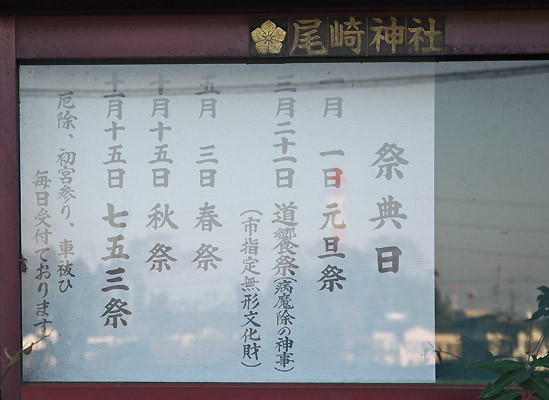 尾崎神社
祭典日
一月 一日 元旦祭
三月二十一日 道饗祭(病魔除の神事)
(市指定無形文化財)
五月 三日 春祭
十月十五日 秋祭
十一月十五日 七五三祭
厄除、初宮参り、車祓ひ
毎日受付ております